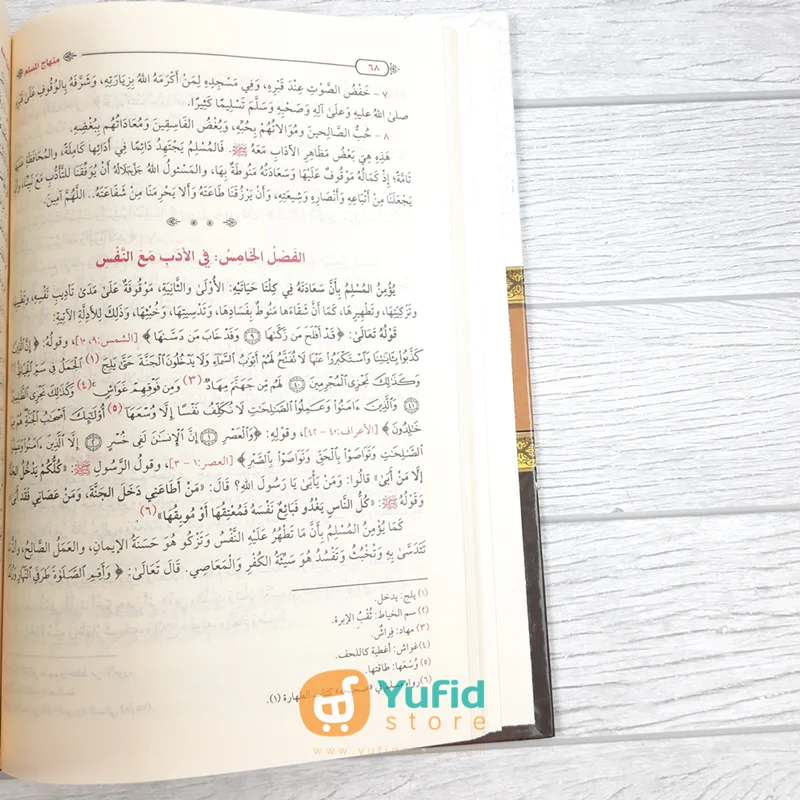 ٦٨
منهاج المسلم
٧ - خَفْضُ الصَّوْتِ عِنْدَ قَبْرِهِ، وَفِي مَسْجِدِهِ لِمَنْ أَكْرَمَهُ اللهُ بِزِيَارَتِهِ، وَشَرَّفَهُ بِالوُقُوفِ عَلَىٰ قَبْرِهِ
صلىٰ اللهُ عليهِ وَعَلَىٰ آلِهِ وَصَحْبِهِ وَسَلَّمَ تَسْلِيمًا كَثِيرًا.
٨ - حُبُّ الصَّالِحِينَ وَمُوَالَاتُهُم بِحُبِّهِ، وَبُغْضُ الفَاسِقِينَ وَمُعَادَاتُهُم بِبُغْضِهِ.
هَذِهِ هِيَ بَعْضُ مَظَاهِرِ الآدَابِ مَعَهُ ﷺ. فَالمُسْلِمُ يَجْتَهِدُ دَائِمًا فِي أَدَائِهَا كَامِلَةً، والمُحَافَظَةِ عَلَيْهَا
تَامَّةً؛ إِذْ كَمَالُهُ مَوْقُوفٌ عَلَيْهَا وَسَعَادَتُهُ مَنُوطَةٌ بِهَا، والمَسْئُولُ اللهُ جَلَّجَلَالُهُ أَنْ يُوَفِّقَنَا لِلتَّأَدُّبِ مَعَ نَبِيِّنَا،
يَجْعَلَنَا مِنْ أَتْبَاعِهِ وَأَنْصَارِهِ وَشِيعَتِهِ، وَأَنْ يَرْزُقَنَا طَاعَتَهُ وَأَلَّا يَحْرِمَنَا مِنْ شَفَاعَتِهِ.. اللَّهُمَّ آمِينَ.
الفَصْلُ الخَامِسُ: فِي الأَدَبِ مَعَ النَّفْسِ
يُؤْمِنُ المُسْلِمُ بِأَنَّ سَعَادَتَهُ فِي كِلْتَا حَيَاتَيْهِ: الأُوْلَىٰ والثَّانِيَةِ، مَوْقُوفَةٌ عَلَىٰ مَدَىٰ تَأْدِيبِ نَفْسِهِ،
وتَزْكِيَتِهَا، وتَطْهِيرِهَا، كَمَا أَنَّ شَقَاءَهَا مَنُوطٌ بِفَسَادِهَا، وَتَدْسِيَتِهَا، وَخُبْثِهَا، وَذَلِكَ لِلأَدِلَّةِ الآتِيَةِ:
قَوْلُهُ تَعَالَىٰ: ﴿ قَدْ أَفْلَحَ مَن زَكَّىٰهَا ٩ وَقَدْ خَابَ مَن دَسَّىٰهَا ﴾ [الشمس:٩، ١٠]، وقولُهُ: ﴿ إِنَّ الَّذِينَ
كَذَّبُوا۟ بِـَٔايَٰتِنَا وَٱسْتَكْبَرُوا۟ عَنْهَا لَا تُفَتَّحُ لَهُمْ أَبْوَٰبُ ٱلسَّمَآءِ وَلَا يَدْخُلُونَ ٱلْجَنَّةَ حَتَّىٰ يَلِجَ (١) ٱلْجَمَلُ فِى سَمِّ ٱلْخِيَاطِ (٢)
وَكَذَٰلِكَ نَجْزِى ٱلْمُجْرِمِينَ ٤٠ لَهُم مِّن جَهَنَّمَ مِهَادٌ (٣) وَمِن فَوْقِهِمْ غَوَاشٍ (٤) وَكَذَٰلِكَ نَجْزِى ٱلظَّٰلِمِينَ
٤١ وَٱلَّذِينَ ءَامَنُوا۟ وَعَمِلُوا۟ ٱلصَّٰلِحَٰتِ لَا نُكَلِّفُ نَفْسًا إِلَّا وُسْعَهَآ (٥) أُو۟لَٰٓئِكَ أَصْحَٰبُ ٱلْجَنَّةِ هُمْ فِيهَا
خَٰلِدُونَ ﴾ [الأعراف:٤٠ - ٤٢]، وقولِهِ: ﴿ وَٱلْعَصْرِ ١ إِنَّ ٱلْإِنسَٰنَ لَفِى خُسْرٍ ٢ إِلَّا ٱلَّذِينَ ءَامَنُوا۟ وَعَمِلُوا۟
ٱلصَّٰلِحَٰتِ وَتَوَاصَوْا۟ بِٱلْحَقِّ وَتَوَاصَوْا۟ بِٱلصَّبْرِ ﴾ [العصر:١ - ٣]، وقولُ الرَّسُولِ ﷺ: «كُلُّكُمْ يَدْخُلُ الجَنَّةَ
إِلَّا مَنْ أَبَىٰ» قَالُوا: وَمَنْ يَأْبَىٰ يَا رَسُولَ اللهِ؟ قَالَ: «مَنْ أَطَاعَنِي دَخَلَ الجَنَّةَ، وَمَنْ عَصَانِي فَقَد أَبَىٰ»
وَقَوْلُهُ ﷺ: «كُلُّ النَّاسِ يَغْدُو فَبَائِعٌ نَفْسَهُ فَمُعْتِقُهَا أَوْ مُوبِقُهَا» (٦)
كَمَا يُؤْمِنُ المُسْلِمُ بِأَنَّ مَا تَطْهُرُ عَلَيْهِ النَّفْسُ وَتَزْكُو هُوَ حَسَنَةُ الإِيمَانِ، والعَمَلُ الصَّالِحُ،
تَتَدَسَّىٰ بِهِ وَتَخْبُثُ وَتَفْسُدُ هُوَ سَيِّئَةُ الكُفْرِ وَالمَعَاصِي. قَالَ تَعَالَىٰ: ﴿ وَأَقِمِ ٱلصَّلَوٰةَ طَرَفَىِ ٱلنَّهَارِ
(١) يلج: يدخل.
(٢) سم الخياط: ثُقْبُ الإبرة.
(٣) مهاد: فِراش.
(٤) غواش: أغطية كاللحف.
(٥) وُسْعَهَا: طاقتها.
(٦) رواه مسلم في الطهارة (١).
Yufid
store